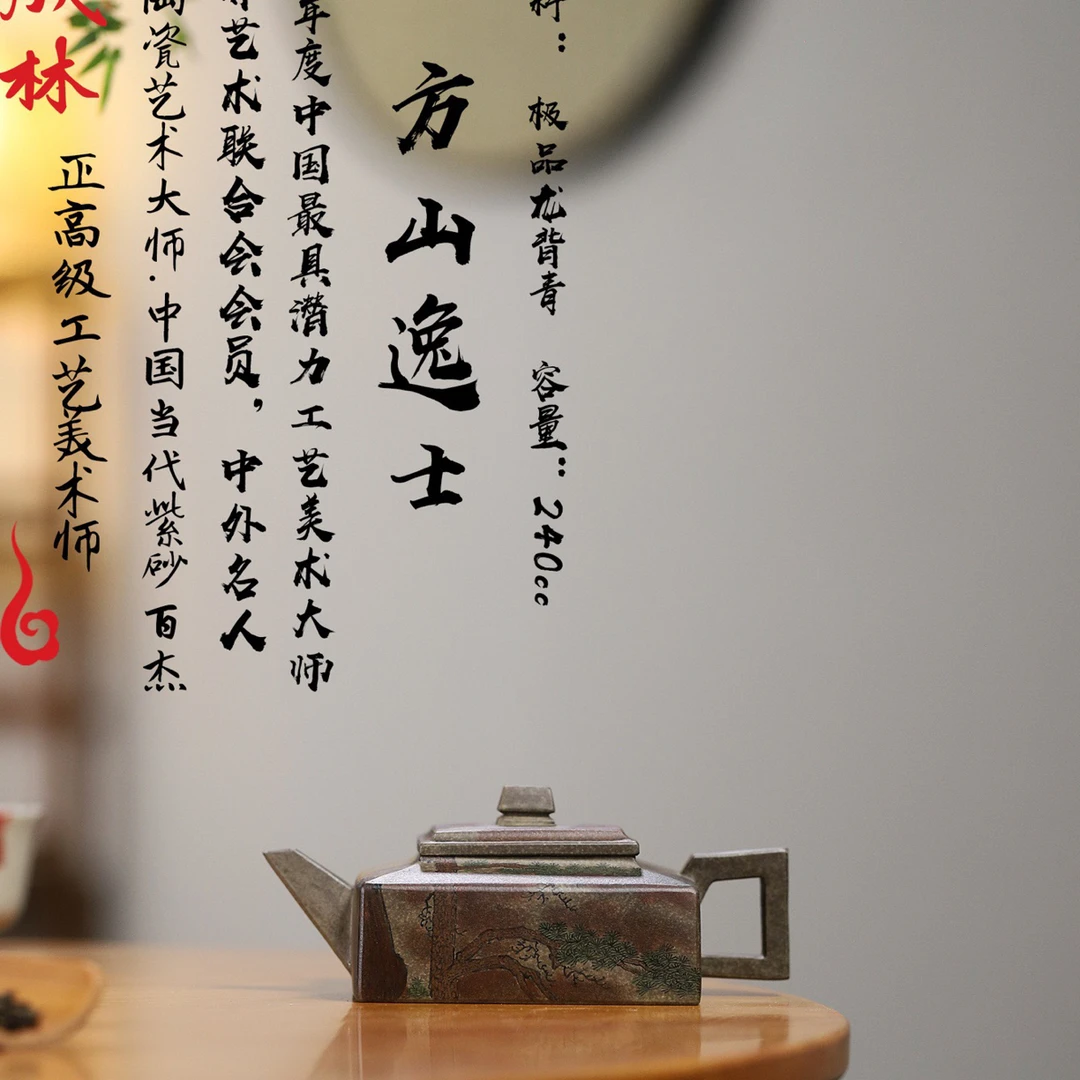 林
正高级工艺美术师
瓷艺术大师·中国当代紫砂百杰
艺术联合会会员，中外名人
年度中国最具潜力工艺美术大师
方山逸士
料：极品龙背青 容量：240cc